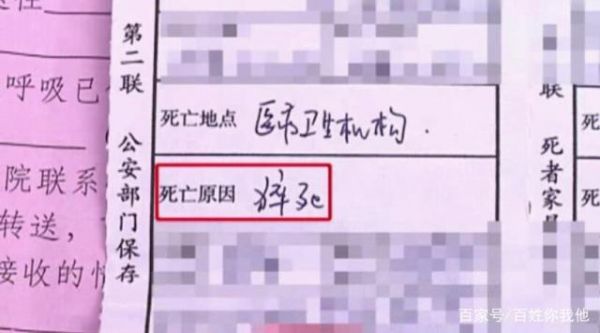 呼吸已
院联系
转送，
接收的
第二联 公安部门保存
死亡地点 医疗卫生机构.
死亡原因 猝死
联 死者家
死
死
百家号/百姓你我他